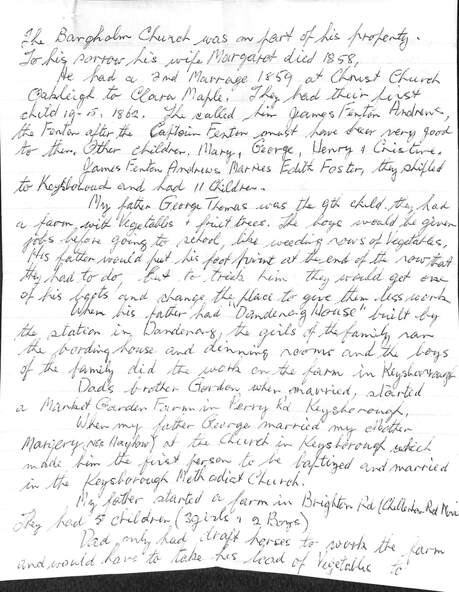 The Bangholm Church was on part of his property.
To his sorrow his wife Margaret died 1858,
He had a 2nd Marrage 1859 at Christ Church
Oakleigh to Clara Maple. They had their first
child 19-5-1862. The called him James Fenton Andrews,
the Fenton after the Captain Fenton must have been very good
to them. Other children, Mary, George, Henry &
James Fenton Andrews Marries Edith Foster, they shifted
to Keysborough and had 11 children.
My father George Thomas was the 9th child they had
a farm with Vegetables & fruit trees. The boys would be given
jobs before going to school, like weeding rows of Vegetables,
His father would put his foot print at the end of the row that
they had to do, but to trick him they would get one
of his boots and change the place to give them less work
When his father had "Dandenong House" built by
the station in Dandenong, the girls of the family ran
the bording house and dinning rooms and the boys
of the family did the work on the farm in Keysborough
Dads brother Gordon when married, started
a Market Garden Farm in Perry Rd Keysborough,
When my father George married my Mother
Marjery (nee Mayhow) at the Church in Keysborough which
made him the first person to be baptized and married
in the Keysborough Methodist Church.
My father started a farm in Brighton Rd (Cheltenham Rd Now
They had 5 children (3 girls & 2 Boys)
Dad only had draft horses to work the farm
and would have to take his load of Vegetables to